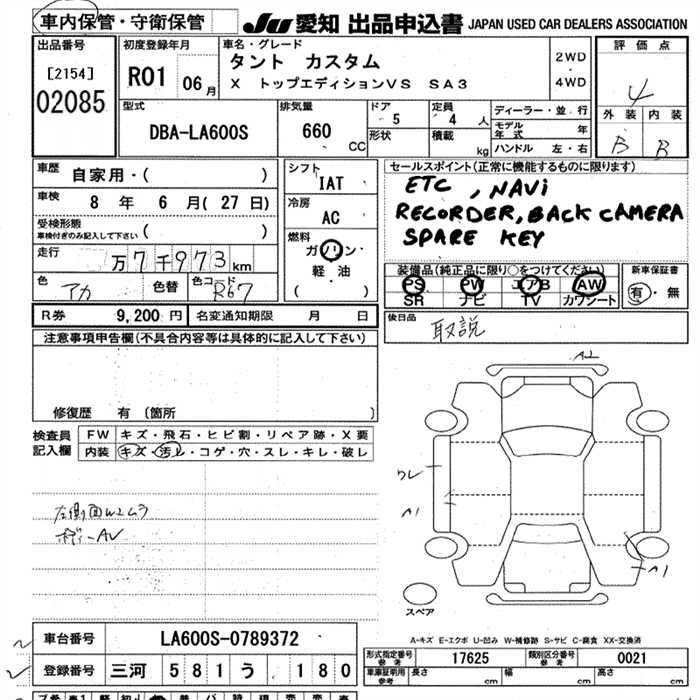 車内保管・守衛保管
JU 愛知 出品申込書 JAPAN USED CAR DEALERS ASSOCIATION
出品番号
[2154]
02085
初度登録年月
R01 06月
車名・グレード
タント カスタム
X トップエディションVS SA3
2WD
・
4WD
評価点
4
外装 内装
B B
型式
DBA-LA600S
排気量
660 CC
ドア 5
形状
定員 4 人
積載 kg
ディーラー・並行
モデル年式 年
ハンドル 左・右
車歴 自家用・( )
車検 8年 6月(27日)
受検形態
車検付きのみ記入して下さい ( )
走行 万7千973km
色 アカ 色替 色コード R67
シフト
IAT
冷房
AC
燃料
ガソリン・
軽・油
( )
セールスポイント(正常に機能するものに限ります)
ETC, NAVi
RECORDER, BACK CAMERA
SPARE KEY
装備品(純正品に限り○をつけてください)
PS PW エアB AW
SR ナビ TV カワシート
新車保証書
有・無
R券 9,200円 名変通知期限 月 日
後日品
取説
注意事項申告欄(不具合内容等は具体的に記入して下さい)
修復歴 有〔箇所 〕
検査員
記入欄
FW キズ・飛石・ヒビ割・リペア跡・X要
内装 キズ・汚レ・コゲ・穴・スレ・キレ・破レ
左側面W2ムラ
A2
ワレ
A1
A1
スペア
A-キズ E-エクボ U-凹み W-補修跡 S-サビ C-腐食 XX-交換済
車台番号 LA600S-0789372
登録番号 三河 581 う ・180
形式指定番号
参考
17625
類別区分番号
参考
0021
車庫証明用
参考
長さ cm 幅 cm 高さ cm